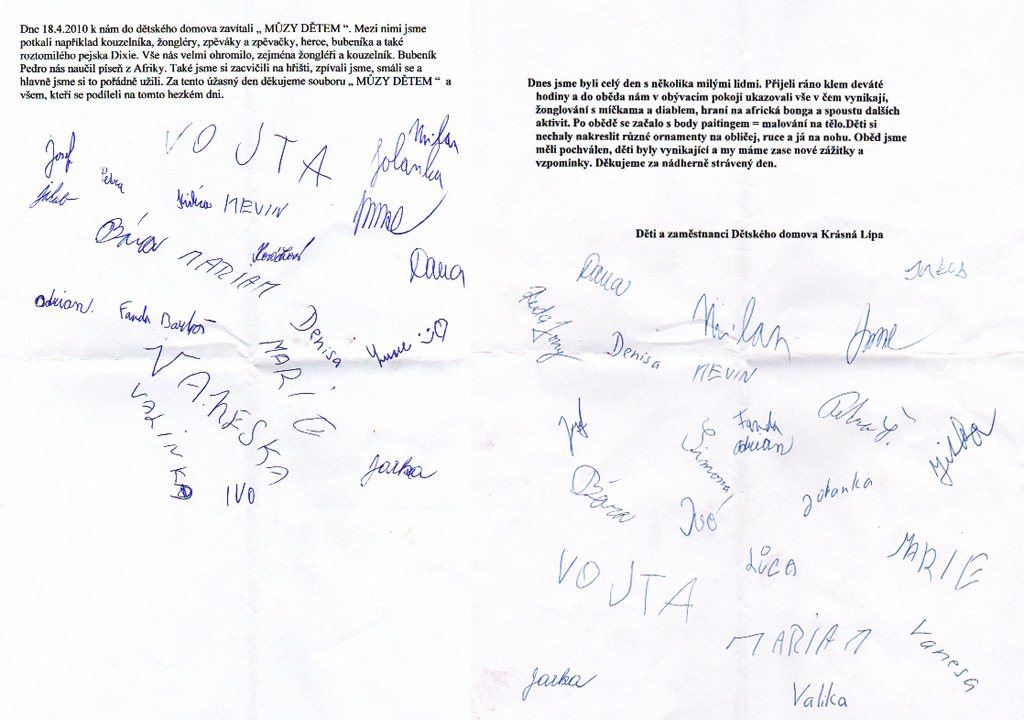 Dne 18.4.2010 k nám do dětského domova zavítali „ MŮZY DĚTEM “. Mezi nimi jsme
potkali například kouzelníka, žongléry, zpěváky a zpěvačky, herce, bubeníka a také
roztomilého pejska Dixie. Vše nás velmi ohromilo, zejména žongléři a kouzelník. Bubeník
Pedro nás naučil píseň z Afriky. Také jsme si zacvičili na hřišti, zpívali jsme, smáli se a
hlavně jsme si to pořádně užili. Za tento úžasný den děkujeme souboru „ MŮZY DĚTEM “ a
všem, kteří se podíleli na tomto hezkém dni.
VOJTA
Milan
Jolanka
Josef
Petra
Jakub
NEVIN
Bára
MARIAM
Dana
adrian.
Fanda Bartoš
Denisa
MARIE
VANESKA
VALINKA
IVO
Jarka
Dnes jsme byli celý den s několika milými lidmi. Přijeli ráno klem deváté
hodiny a do oběda nám v obývacím pokoji ukazovali vše v čem vynikají,
žonglování s míčkama a diablem, hraní na africká bonga a spoustu dalších
aktivit. Po obědě se začalo s body paitingem = malování na tělo.Děti si
nechaly nakreslit různé ornamenty na obličej, ruce a já na nohu. Oběd jsme
měli pochválen, děti byly vynikající a my máme zase nové zážitky a
vzpomínky. Děkujeme za nádherně strávený den.
Děti a zaměstnanci Dětského domova Krásná Lípa
Dana
Milan
Denisa
NEVIN
Fanda
adrian
Simona
Bára
Ivó
Jolanka
Lůca
MARIE
VOJTA
MARIAM
Vanesa
Jarka
Valika